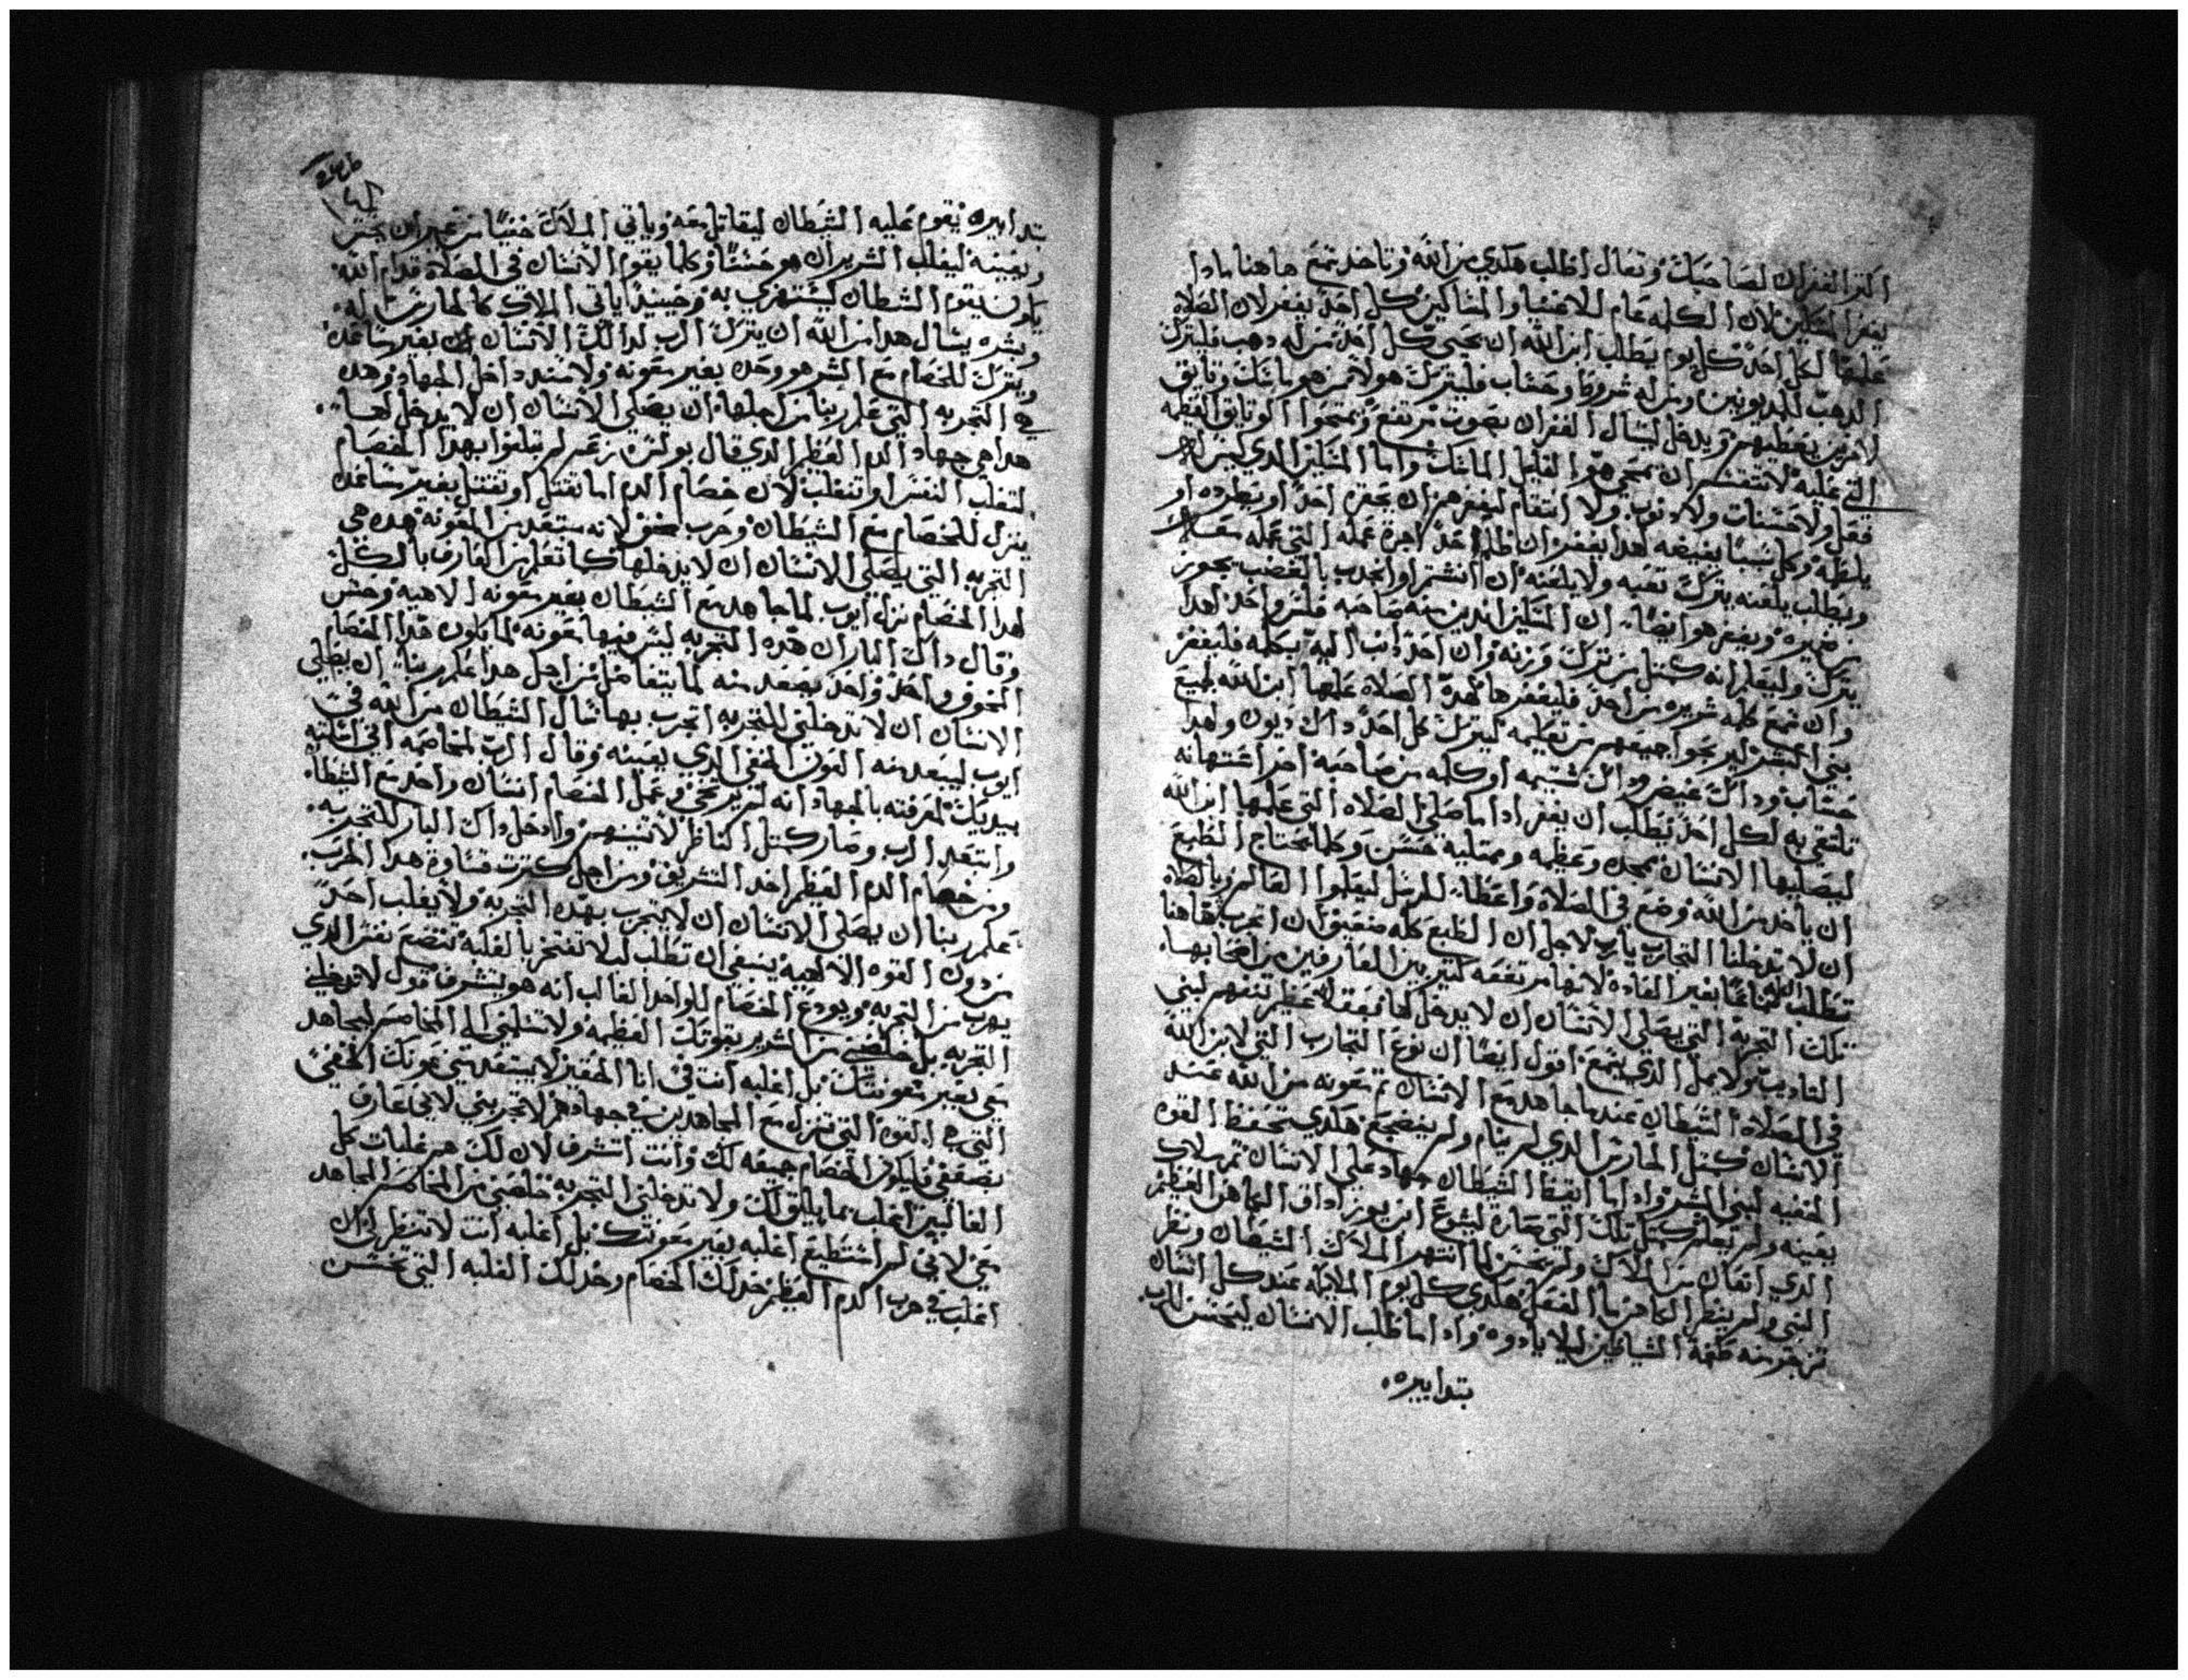 اكتر الغفران لصاحبك وتعال اطلب هكدي من الله وتاخد بتمتع هاهنا مادا
يغفر المسكين لان الكلمه عام للاغنيا والمساكين كل احد يغفر لان الصلاه
عليها لكل احد كل يوم يطلب ابن الله ان يحيى كل احد من له دهب فليترك
الدهب للمديونين ومن له شروط وحساب فليترك هولا من هو ماسك وتايق
لاخرين يعطيهم ويدخل ليسال الغفران بصوت مرتفع وتمحوا الوتايق العظمه
التي عليه لا تنتقش ان تمحى هو القليل الماسك واما المسكين الدي ليس له
فعل ولا حسنات ولا دنوب ولا انتقام ليغفر هو ان يحقره احد او يطرده او
يلطمه وكل سببا يغيضه لهدا يغفر ان ظلم احد اجرة عمله التي عمله
ويطلب يلعنه يترك تعبه ولا يلعنه ان انشتم او انجدب بالغضب يجوز
من ضميره ويغفر هو ايضا ان المسكين
يترك وليعلم انه كمتل من ترك وزنه وان احد ادنب اليه بكلمه فليغفر
وان سمع كلمه شريره من احد فليغفرها لهده الصلاه علمها ابن الله لجميع
بني البشر لينجوا جميعهم من تعليمه ليترك كل احد داك ديون ولهدا
حساب وداك غيض وداك شتيمه او كلمه من صاحبه اخر استهانه
تلتقي به لكل احد يطلب ان يغفر ادا ما صلى الصلاه التي علمها ابن الله
ليصليها الانسان بمجده وعظمه وبمتليه حسن وكلما يحتاج الطبع
ان ياخد من الله وضع في الصلاه واعطا للرسل ليعلموا العالم بالصلاه
ان لا تدخلنا التجارب يارب لاجل ان الطبع كله ضعيف لان اتجرب هاهنا
تطلب الله بغير العاده لانها مرتفعه كتير بين العارفين من اصحابها
تلك التجربه التي يصلي الانسان ان لا يدخل لها
التاديب ولا يمل الدي يسمع اقول ايضا ان نوع التجارب التي لابن الله
في الصلاه الشيطان عندما جاهد مع الانسان تم معونه من الله عند
الانسان كمتل الحارس الدي لم ينام ولم يضجع هكدي تحفظ القوه
الخفيه لبني البشر وادا ما ايقظ الشيطان جهاد على الانسان تم ملاك
يعينه ولم يعلم كمتل تلك التي صاره ليشوع ابن يوزاداق الكاهن العظيم
الدي اتعان من الملاك ولم يحس لما انتهر الملاك الشيطان ونظر
النبي ولم ينظر الكاهن بالفعل هكدي كل يوم الملايكه عند كل انسان
تزجر منه طغمة الشياطين ليلا يادوه وادا ما طلب الانسان ليحسن للرب
بتدابيره
بتدابيره يقوم عليه الشيطان ليقاتل معه وياتي الملاك خفيا من غير ان يحس
ويعينه ليغلب الشرير ان هو حسنا وكلما يقوم الانسان في الصلاه قدام الله
يكون يقوم الشطان ليستهزي به وحينيد ياتي الملاك كالحارس له
وبشره يسال هدا من الله ان يترك الرب لدالك الانسان ان بغير ساعده
ويترك للخصام مع الشر هو وحده بغير معونه ولا مسند داخل الجهاد وهده
هي التجربه التي علم ربنا من اجلها ان يصلي الانسان ان لا يدخل لها
هدا هي جهاد الدم العظيم الدي قال بولس زعم لم تبلغوا بهدا الخصام
لتغلب النفس او تنغلب لان خصام الدم اما تقتل او تنقتل بغير ساعده
ينزل للخصام مع الشيطان وحرب مخفي لانه مبتعد من المعونه هده هي
التجربه التي يصلي الانسان ان لا يدخلها كما تعلم من العارف بالكل
لهدا الخصام نزل ايوب لما جاهد مع الشيطان بغير معونه الاهيه وحس
وقال داك البار ان هده التجربه لشر فيها معونه لما يكون هدا الخصام
المخوف واحد وواحد يصعد منه لما يتفاضل من اجل هدا علم ربنا ان يصلي
الانسان ان لا تدخلني للتجربه اتجرب بها سال الشيطان من الله في
ايوب ليبعد منه العون الخفي الدي يعينه وقال الرب لمخاصمه اني اسلمته
بيديك لمعرفته بالجهاد انه لم يرتخي وعمل الخصام انسان واحد مع الشيطان
وابتعد الرب وصار كمتل الناظر لاتنينهم وادخل داك البار للتجربه
ومن خصام الدم العظيم اخد التشريف ومن اجل كترت قساوة هدا الحرب
علم ربنا ان يصلي الانسان ان لا يتجرب بهده التجربه ولا يغلب احد
من دون القوه الالهيه ينبغي ان تطلب ليلا تفتخر بالغلبه تتضع نفس الدي
يهرب من التجربه ويودع الخصام للواحد الغالب انه هو يتشرف قول لا تدخلني
التجربه بل خلصني من الشرير بقوتك العظيمه ولا تسلمني الى المخاصم ليجاهد
معي بغير معونتك بل اغلبه انت في انا الحقير لا يبتعد مني عونك الخفي
التي هي القوه التي تنزل مع المجاهدين في جهادهم لا تجربني لاني عارف
بضعفي فليكون الخصام جميعه لك وانت اتشرف لان لك هم غلبات كل
الغالبين اغلب بما يليق لك ولا تدخلني التجربه خلصني من المخاصم المجاهد
معي لاني لم استطيع اغلبه بغير معونتك بل اغلبه انت لا تنظر ان
اغلب في حرب الدم العظيم خد لك الخصام وخد لك الغلبه التي تحسن